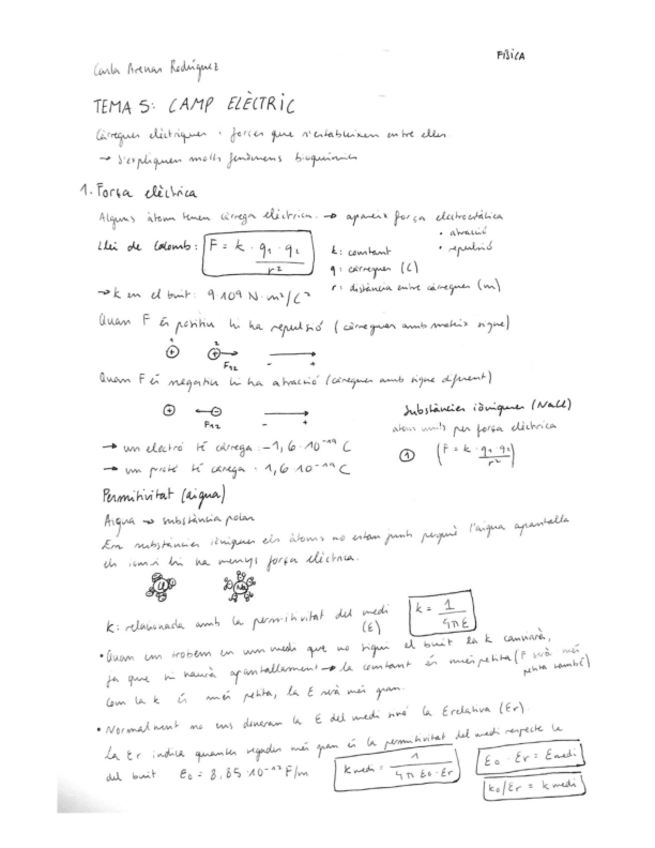 FÍSICA
Carla Arenas Rodríguez
TEMA 5: CAMP ELÈCTRIC
Càrregues elèctriques · forces que s'estableixen entre elles.
→ S'expliquen molts fenòmens bioquímics
1. Força elèctrica
Alguns àtoms tenen càrrega elèctrica. → apareix força electrostàtica
• atracció
• repulsió
Llei de Colomb: F = k · q₁ · q₂ / r²
k: constant
q: càrregues (C)
r: distància entre càrregues (m)
→ k en el buit: 9·10⁹ N·m²/C²
Quan F és positiu hi ha repulsió (càrregues amb mateix signe)
1 2
+ + F₁₂ - +
Quan F és negatiu hi ha atracció (càrregues amb signe diferent)
+ - F₁₂ - +
Substàncies iòniques (NaCl)
àtoms units per força elèctrica
① (F = k · q₁ · q₂ / r²)
→ un electró té càrrega: -1,6·10⁻¹⁹ C
→ un protó té càrrega: 1,6·10⁻¹⁹ C
Permitivitat (aigua)
Aigua → substància polar
En substàncies iòniques els àtoms no estan junts perquè l'aigua apantalla
els ions i hi ha menys força elèctrica.
Cl Na
k: relacionada amb la permitivitat del medi (ε)
k = 1 / 4πε
• Quan ens trobem en un medi que no sigui el buit la k canviarà,
ja que hi haurà apantallament → la constant és més petita (F serà més petita també)
Com la k és més petita, la ε serà més gran.
• Normalment no ens donaran la ε del medi sinó la ε relativa (εr).
La εr indica quantes vegades més gran és la permitivitat del medi respecte la
del buit ε₀ = 8,85·10⁻¹² F/m
k medi = 1 / 4π ε₀·εr
ε₀ · εr = ε medi
k₀/εr = k medi